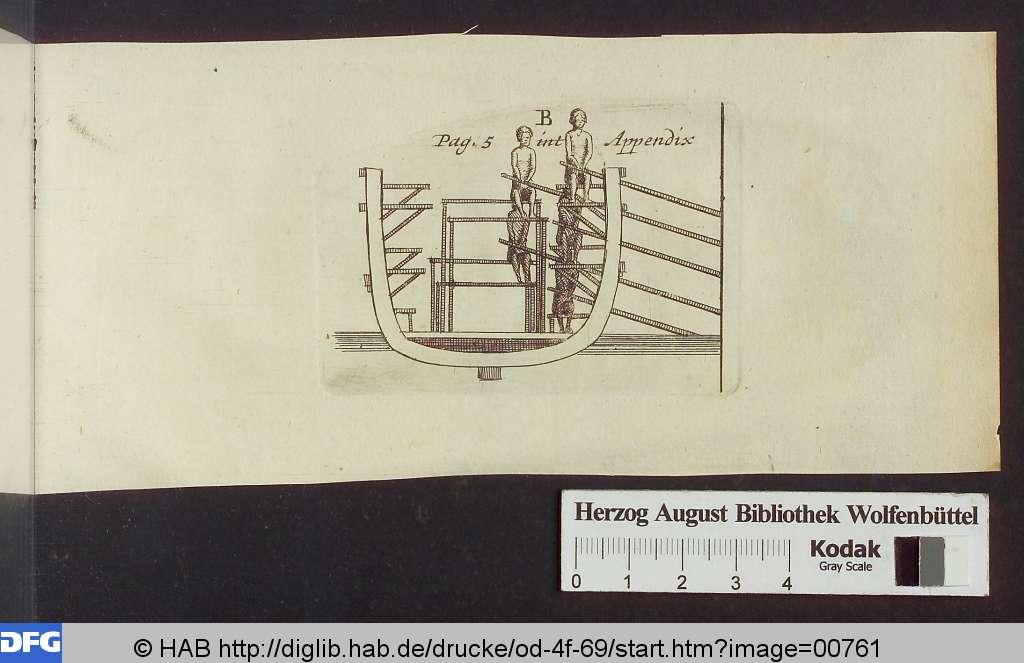 B
Pag. 5 int Appendix
Herzog August Bibliothek Wolfenbüttel
Kodak
Gray Scale
0 1 2 3 4
DFG
© HAB http://diglib.hab.de/drucke/od-4f-69/start.htm?image=00761